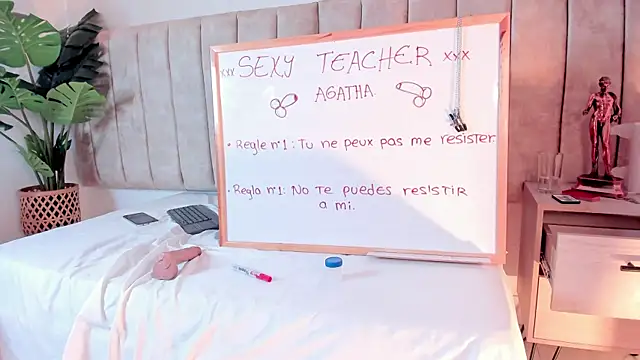 xxx SEXY TEACHER xxx
AGATHA.
• Regle n°1: Tu ne peux pas me resister.
• Regla n°1: No te puedes resistir
a mi.